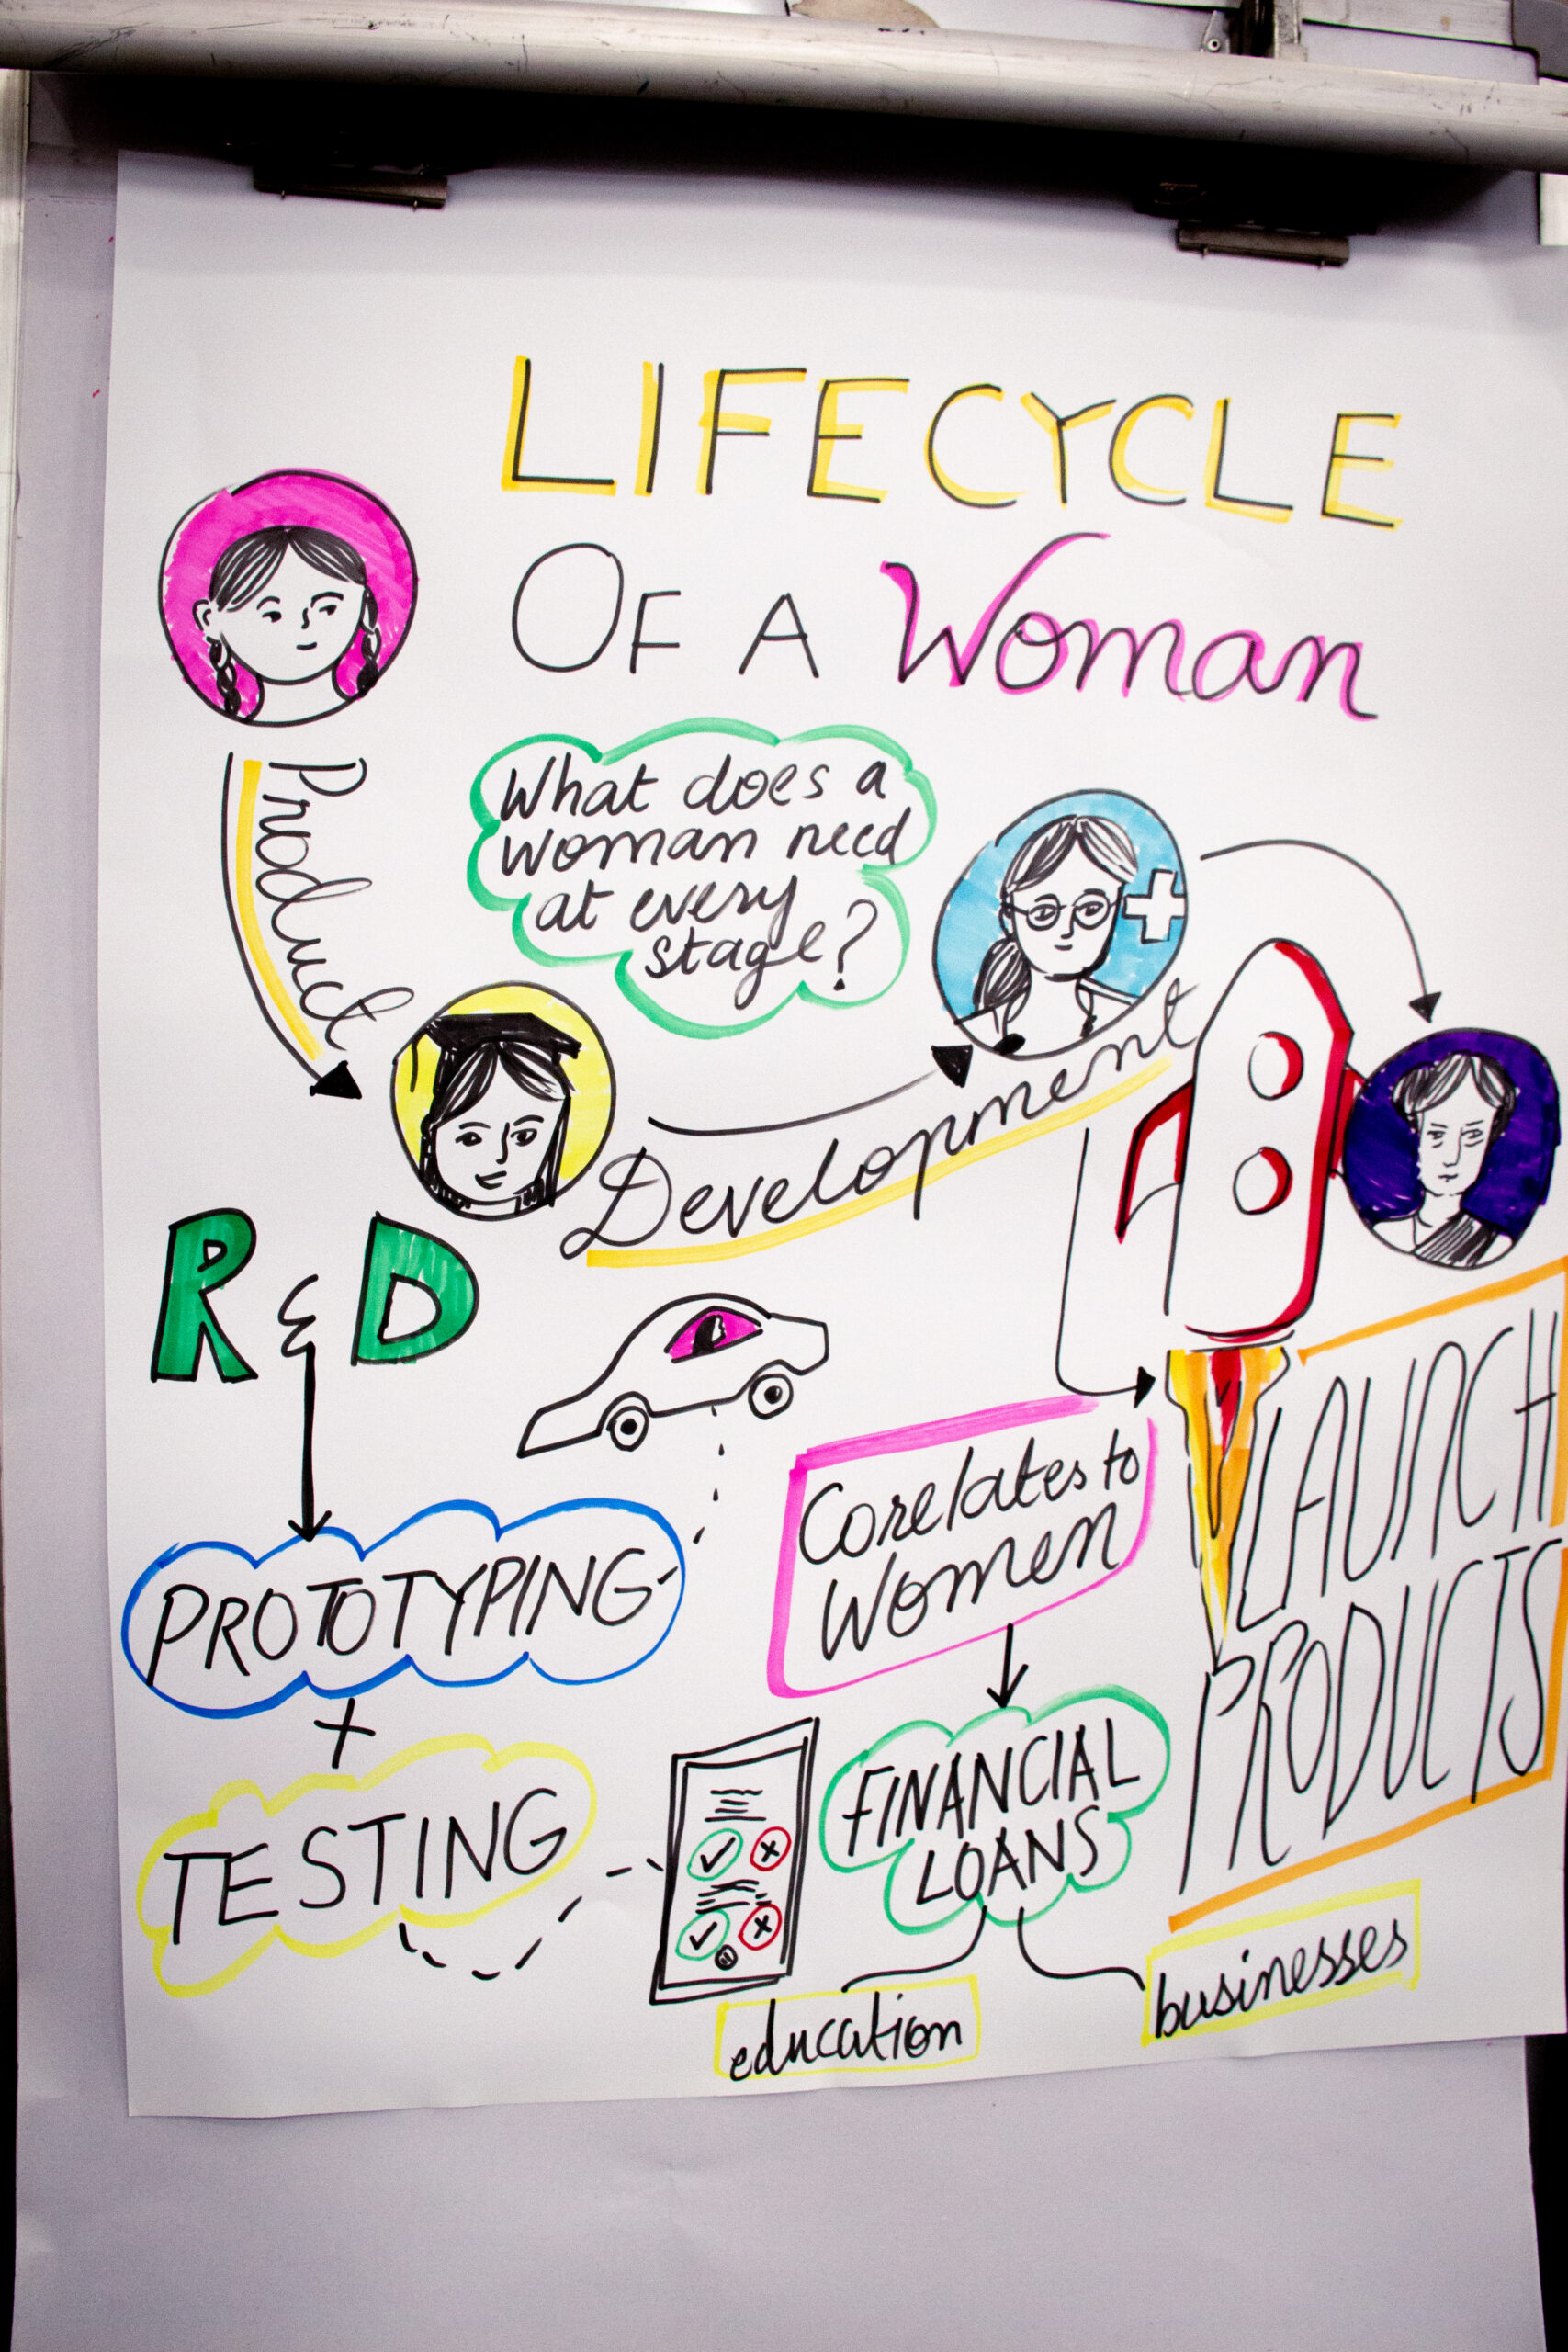 LIFECYCLE
OF A Woman
Product
What does a
woman need
at every
stage?
Development
R & D
PROTOTYPING
+
TESTING
Corelates to
Women
FINANCIAL
LOANS
education
businesses
LAUNCH
PRODUCTS